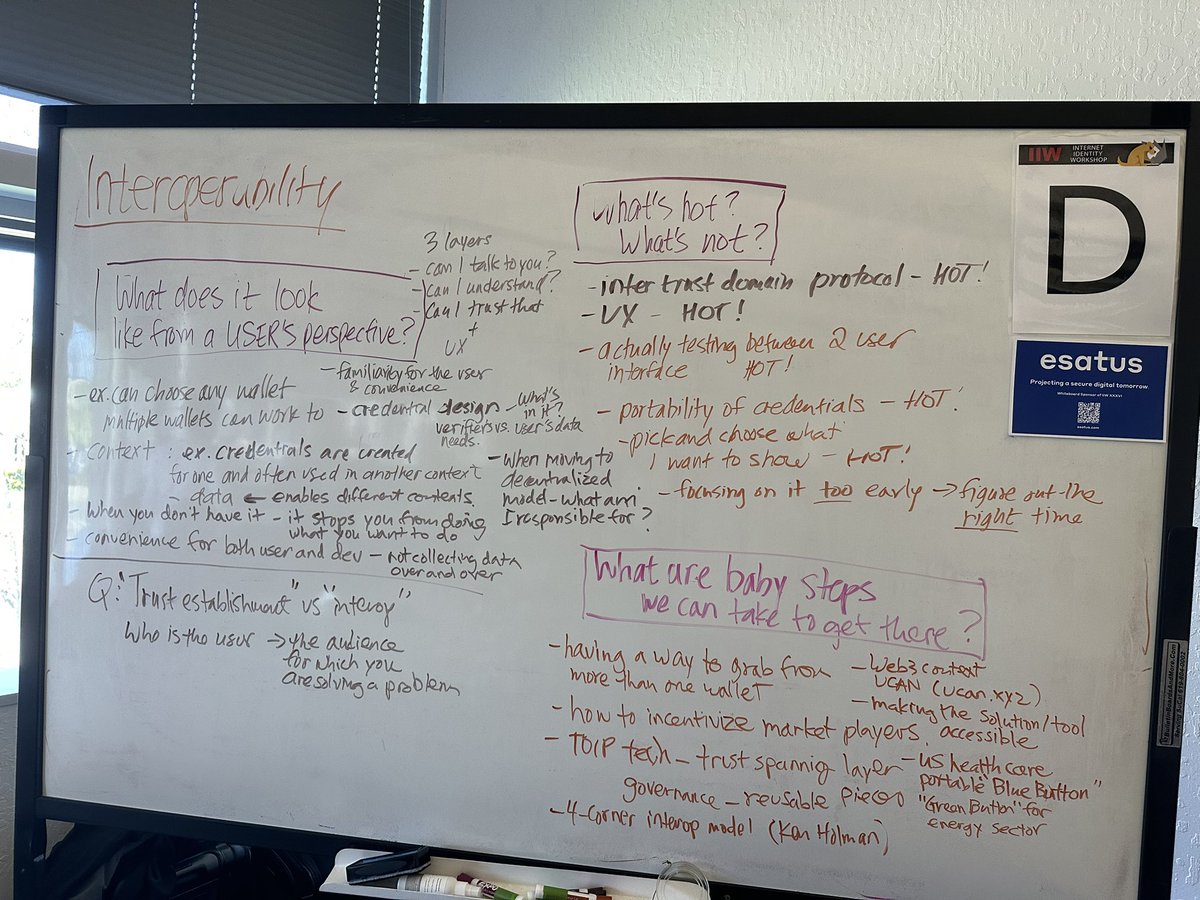 Interoperability
What does it look
like from a USER'S perspective?
3 layers
- can I talk to you?
- can I understand?
- can I trust that
+
UX
- familiarity for the user
& convenience
- ex. can choose any wallet
multiple wallets can work to
- credential design
verifiers vs. user's data
needs.
- What's
in it?
- context : ex. credentials are created
for one and often used in another context
- data ← enables different contexts
- when you don't have it - it stops you from doing
what you want to do
- convenience for both user and dev - not collecting data
over and over
- when moving to
decentralized
model - what am
I responsible for?
Q: "Trust establishment" vs "interop"
Who is the user → the audience
for which you
are solving a problem
What's hot?
What's not?
- inter trust domain protocol - HOT!
- UX - HOT!
- actually testing between 2 user
interface HOT!
- portability of credentials - HOT!
- pick and choose what
I want to show - HOT!
- focusing on it too early → figure out the
right time
What are baby steps
we can take to get there?
- having a way to grab from
more than one wallet
- how to incentivize market players.
- TOIP tech - trust spanning layer
governance - reusable pieces
- 4-corner interop model (Ken Holman)
- Web3 context
UCAN (ucan.xyz)
- making the solution/tool
accessible
- US healthcare
portable "Blue Button"
"Green Button" for
energy sector
IIW INTERNET
IDENTITY
WORKSHOP
D
esatus
Projecting a secure digital tomorrow.
Whiteboard Sponsor of IIW XXXVI
esatus.com